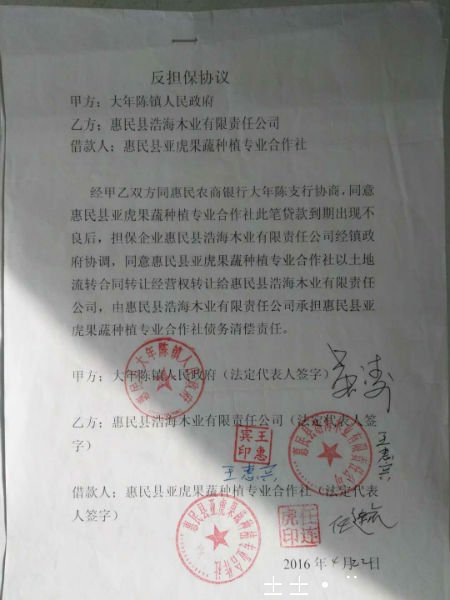 反担保协议
甲方：大年陈镇人民政府
乙方：惠民县浩海木业有限责任公司
借款人：惠民县亚虎果蔬种植专业合作社
经甲乙双方同惠民农商银行大年陈支行协商，同意
惠民县亚虎果蔬种植专业合作社此笔贷款到期出现不
良后，担保企业惠民县浩海木业有限责任公司经镇政
府协调，同意惠民县亚虎果蔬种植专业合作社以土地
流转合同转让经营权转让给惠民县浩海木业有限责任
公司，由惠民县浩海木业有限责任公司承担惠民县亚
虎果蔬种植专业合作社债务清偿责任。
惠民县大年陈镇人民政府
甲方：大年陈镇人民政府（法定代表人签字）
乙方：惠民县浩海木业有限责任公司（法定代表人签
字）
王惠宾印
惠民县浩海木业有限责任公司
王惠宾
王惠宾
借款人：惠民县亚虎果蔬种植专业合作社（法定代表
人签字）
惠民县亚虎果蔬种植专业合作社
任连虎印
任连虎
2016年4月22日